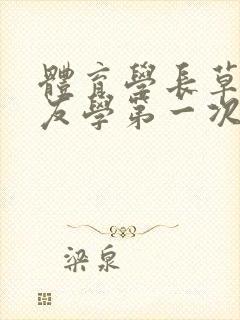 體育學長草
友學第一次
梁泉